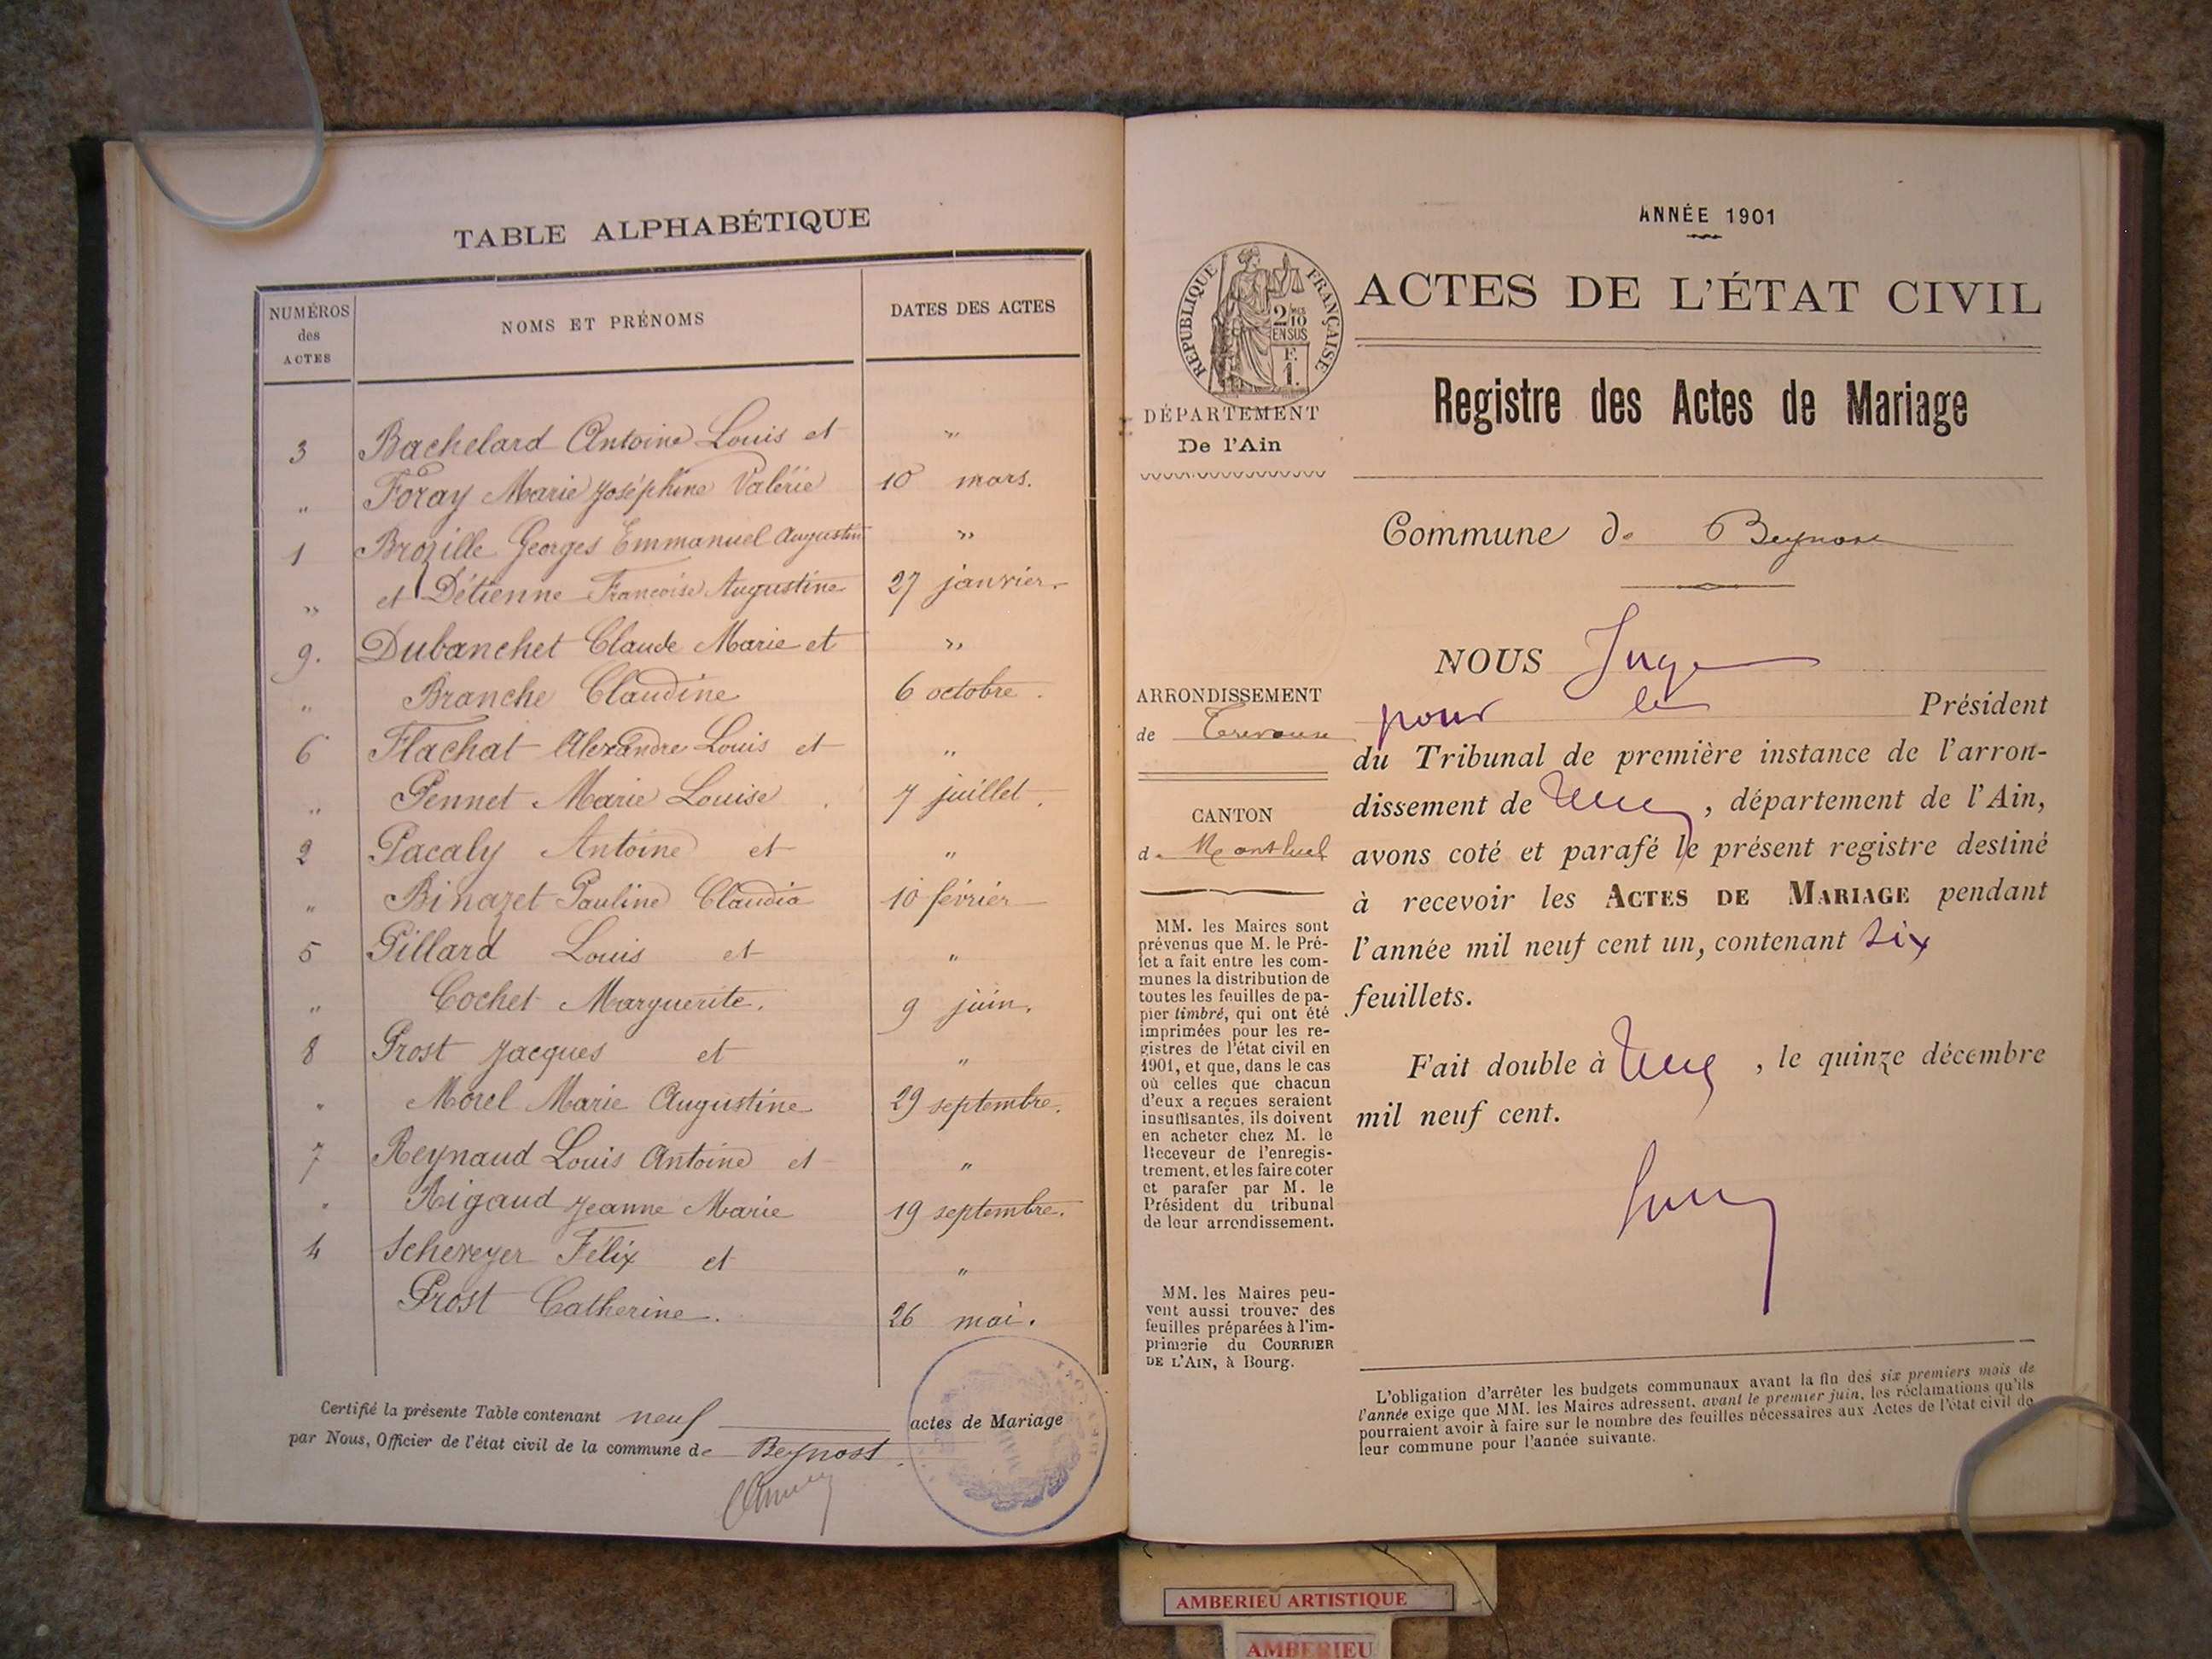 TABLE ALPHABÉTIQUE
NUMÉROS
des
ACTES
NOMS ET PRÉNOMS
DATES DES ACTES
3 Bachelard Antoine Louis et "
" Foray Marie Joséphine Valérie 10 mars.
1 Brozille Georges Emmanuel Augustin "
" et Détienne Françoise Augustine 27 janvier.
9. Dubanchet Claude Marie et "
" Branche Claudine 6 octobre.
6 Flachat Alexandre Louis et "
" Pennet Marie Louise 7 juillet.
2 Pacaly Antoine et "
" Binazet Pauline Claudia 10 février
5 Pillard Louis et "
" Cochet Marguerite. 9 juin.
8 Prost Jacques et "
" Morel Marie Augustine 29 septembre.
7 Reynaud Louis Antoine et "
" Rigaud Jeanne Marie 19 septembre.
4 Schereyer Félix et "
Prost Catherine. 26 mai.
Certifié la présente Table contenant neuf actes de Mariage
par Nous, Officier de l'état civil de la commune de Beynost.
ANNÉE 1901
RÉPUBLIQUE FRANÇAISE
2/10
EN SUS
F.
1.
ACTES DE L'ÉTAT CIVIL
DÉPARTEMENT
De l'Ain
Registre des Actes de Mariage
Commune de Beynost
ARRONDISSEMENT
de Trevoux
CANTON
de Montluel
MM. les Maires sont
prévenus que M. le Pré-
fet a fait entre les com-
munes la distribution de
toutes les feuilles de pa-
pier timbré, qui ont été
imprimées pour les re-
gistres de l'état civil en
1901, et que, dans le cas
où celles que chacun
d'eux a reçues seraient
insuffisantes, ils doivent
en acheter chez M. le
Receveur de l'enregis-
trement, et les faire coter
et parafer par M. le
Président du tribunal
de leur arrondissement.
MM. les Maires peu-
vent aussi trouver des
feuilles préparées à l'im-
primerie du COURRIER
DE L'AIN, à Bourg.
NOUS Juge
pour le Président
du Tribunal de première instance de l'arron-
dissement de , département de l'Ain,
avons coté et parafé le présent registre destiné
à recevoir les ACTES DE MARIAGE pendant
l'année mil neuf cent un, contenant six
feuillets.
Fait double à , le quinze décembre
mil neuf cent.
L'obligation d'arrêter les budgets communaux avant la fin des six premiers mois de
l'année exige que MM. les Maires adressent, avant le premier juin, les réclamations qu'ils
pourraient avoir à faire sur le nombre des feuilles nécessaires aux Actes de l'état civil de
leur commune pour l'année suivante.
AMBERIEU ARTISTIQUE
AMBERIEU